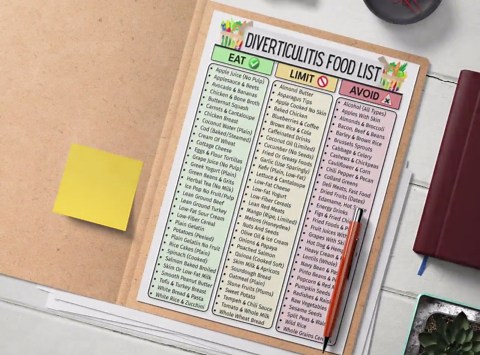 DIVERTICULITIS FOOD LIST
EAT
Apple Juice (No Pulp)
Applesauce & Beets
Avocado & Bananas
Chicken & Bone Broth
Butternut Squash
Carrots & Cantaloupe
Chicken Breast
Coconut Water (Plain)
Cod (Baked/Steamed)
Cream Of Wheat
Cottage Cheese
Eggs & Flour Tortillas
Grape Juice (No Pulp)
Greek Yogurt (Plain)
Green Beans & Grits
Herbal Tea (No Milk)
Ice Pop No Fruit/Pulp
Lean Ground Beef
Lean Ground Turkey
Low-Fat Sour Cream
Low-Fiber Cereal
Plain Gelatin
Potatoes (Peeled)
Plain Gelatin No Fruit
Rice Cakes (Plain)
Spinach (Cooked)
Salmon Baked Broiled
Skin Or Low-Fat Milk
Smooth Peanut Butter
Tofu & Turkey Breast
White Bread & Pasta
White Rice & Zucchini
LIMIT
Almond Butter
Asparagus Tips
Apple Cooked No Skin
Baked Chicken
Blueberries & Coffee
Brown Rice & Cola
Caffeinated Drinks
Coconut Oil (Limited)
Cucumber (No Seeds)
Dried Or Greasy Foods
Garlic (Use Sparingly)
Kefir (Plain, Low-Fat)
Lettuce & Cantaloupe
Low-Fat Cheese
Low-Fat Yogurt
Low-Fiber Cereals
Lean Red Meats
Mango (Ripe, Limited)
Melons (Honeydew)
Nuts And Seeds
Olive Oil & Ice Cream
Onions & Papaya
Poached Salmon
Quinoa (Cooked Soft)
Skim Milk & Apricots
Sourdough Bread
Oatmeal (Plain)
Stone Fruits (Plums)
Sweet Potato
Tempeh & Chili Sauce
Tomato & Whole Milk
Whole Wheat Bread
AVOID
Alcohol (All Types)
Apples With Skin
Almonds & Broccoli
Bacon, Beef & Beans
Barley & Brown Rice
Brussels Sprouts
Cabbage & Celery
Cashews & Chickpeas
Cauliflower & Corn
Chili Pepper & Pecan
Collard Greens
Deli Meats, Fast Food
Dried Fruits (Dates)
Edamame, Hot
Energy Drinks
Figs & Fried
Fried Foods &
Fruit Juices With
Grapes With
Hot Dog &
Heavy Cream
Lentils (Whole)
Navy Bean &
Pinto Beans &
Popcorn & Red
Pumpkin Seeds
Radishes &
Raw Vegetables
Sesame Seeds
Split Peas &
Wild Rice
Whole Grains